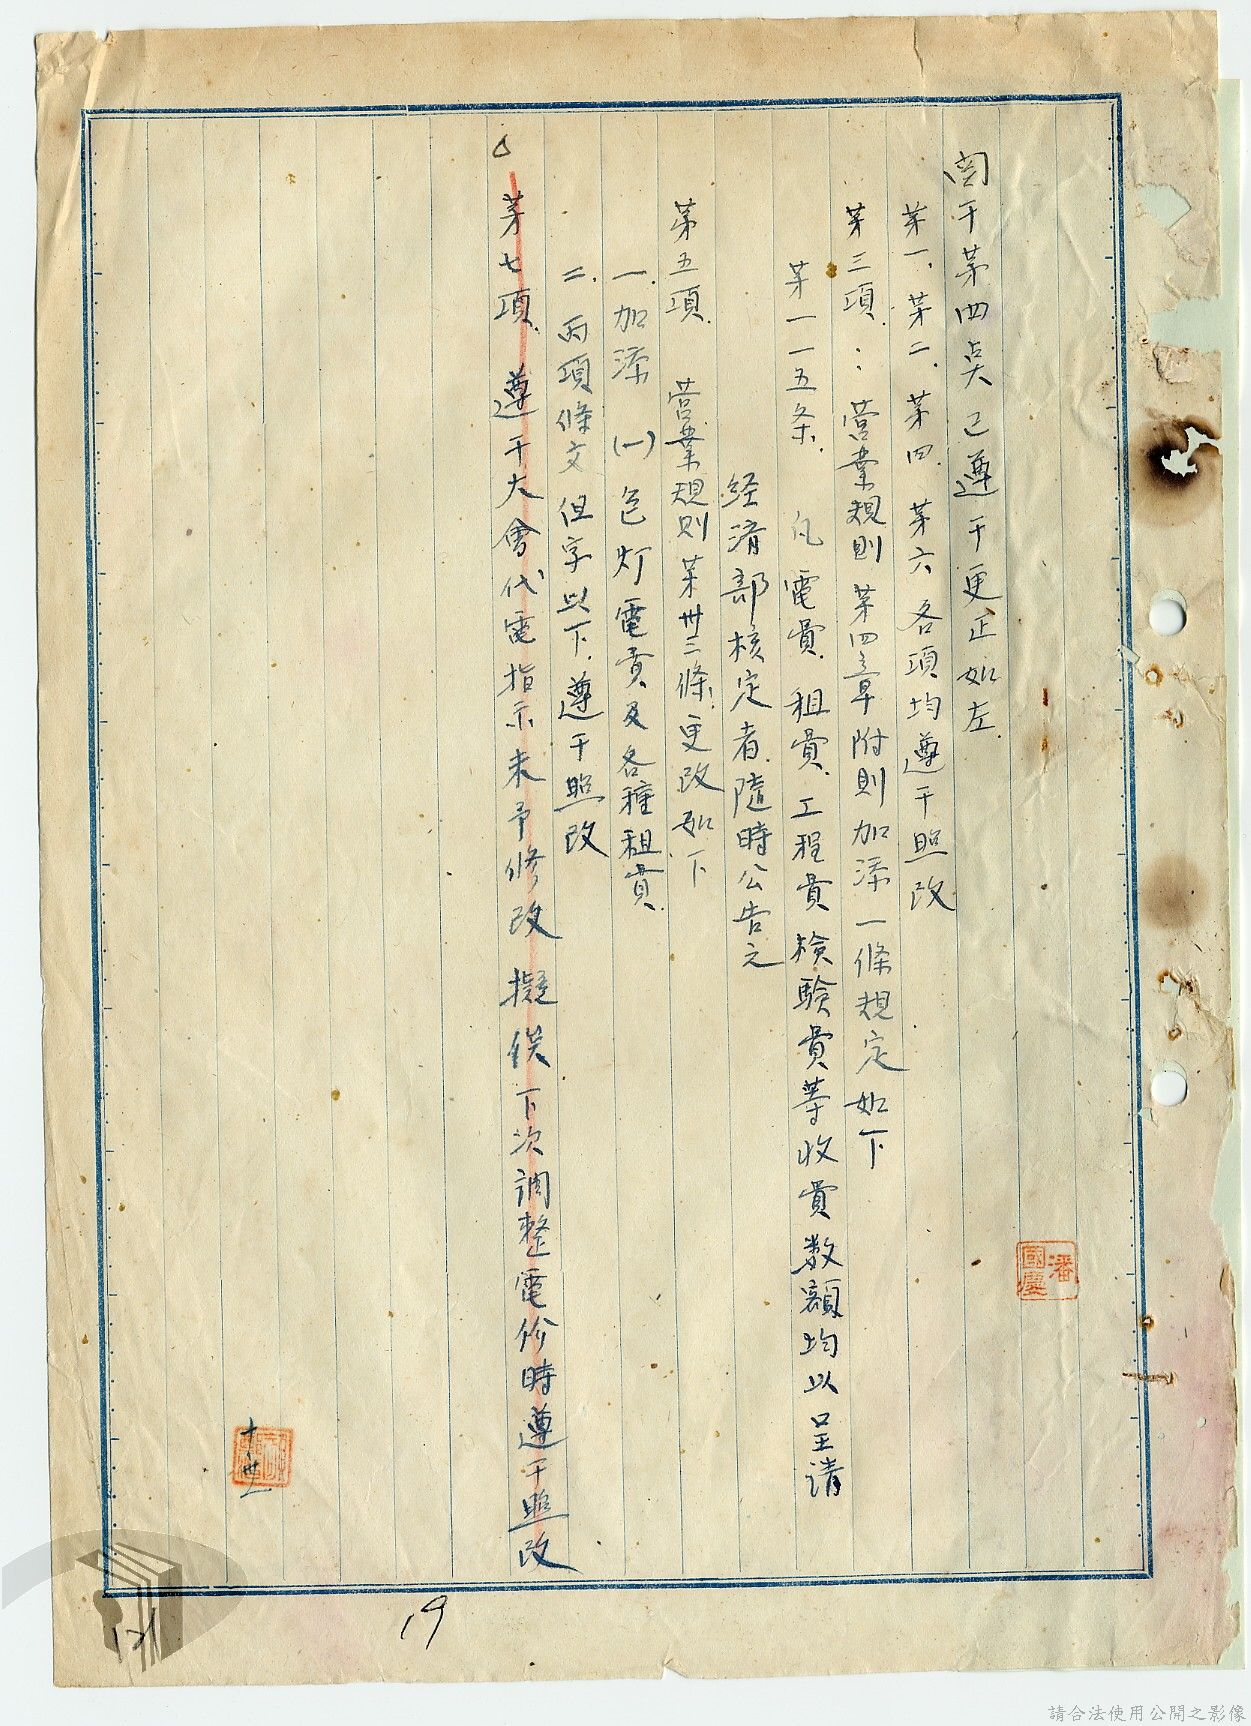 関于苐四点已遵于更正如左.
苐一、苐二、苐四、苐六各項均遵于照改
苐三項：营業規則苐四章附則加添一條規定如下
苐一一五条. 凡電費.租費.工程費檢驗費等收費数額均以呈請
経済部核定者隨時公告之
苐五項. 营業規則苐卅三條.更改如下
一.加添(一)色灯電費及各種租費.
二.丙項條文但字以下.遵于照改
△苐七項.遵于大會代電指示未予修改擬俟下次調整電价時遵于照改
潘國慶
十.卅一
19
121
請合法使用公開之影像